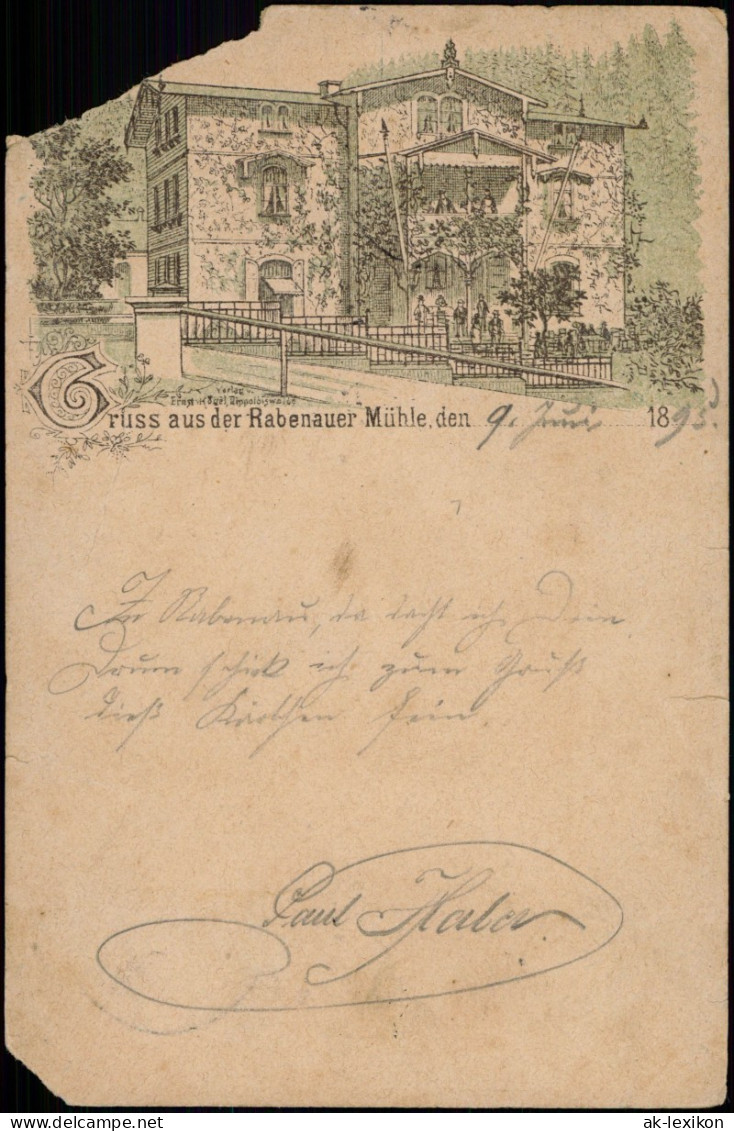 Verlag
Ernst Högel Dippoldiswalde
Gruss aus der Rabenauer Mühle, den 9. Juni 1895.
In Rabenau, da dacht ich Dein
Drum schick ich zum Gruß
dieß Kärtchen fein.
Paul
ak-lexikon